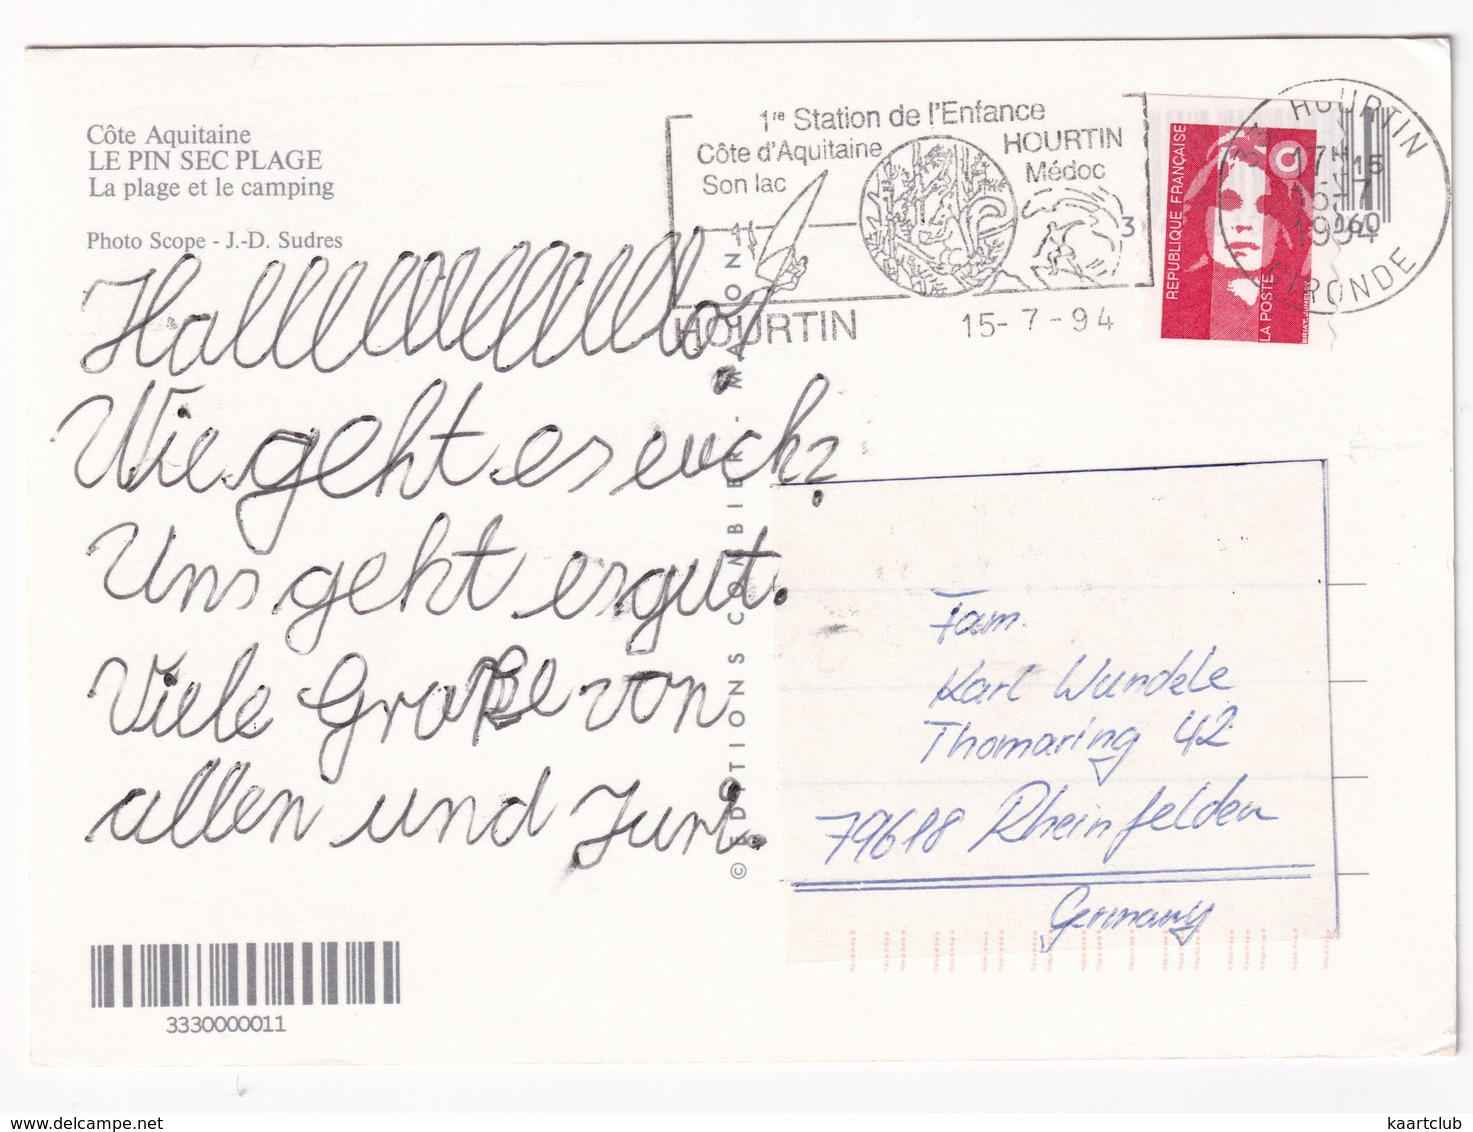 Côte Aquitaine
LE PIN SEC PLAGE
La plage et le camping
Photo Scope - J.-D. Sudres
1re Station de l'Enfance
Côte d'Aquitaine
Son lac
HOURTIN
Médoc
3
HOURTIN
15-7-94
33 HOURTIN
17H 15
15-7
1994
GIRONDE
060
REPUBLIQUE FRANÇAISE
LA POSTE
Hallllllllllllo!
Wie geht es euch?
Uns geht es gut.
Viele Graße von
allen und Juri.
© EDITIONS COMBIER. MACON
Fam.
Karl Wundele
Thomaring 42
79618 Rheinfelden
Germany
3330000011
kaartclub